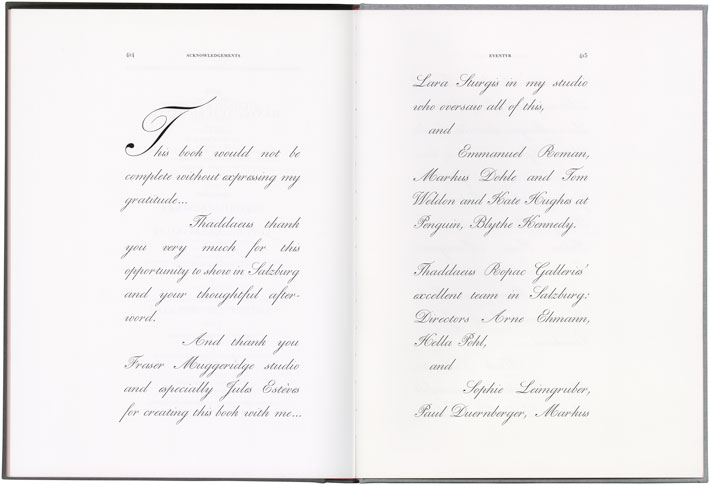 414 ACKNOWLEDGEMENTS
This book would not be
complete without expressing my
gratitude...
Thaddaeus thank
you very much for this
opportunity to show in Salzburg
and your thoughtful after-
word.
And thank you
Fraser Muggeridge studio
and especially Jules Estèves
for creating this book with me...
EVENTYR 415
Lara Sturgis in my studio
who oversaw all of this,
and
Emmanuel Roman,
Markus Dohle and Tom
Weldon and Kate Hughes at
Penguin, Blythe Kennedy.
Thaddaeus Ropac Galleries'
excellent team in Salzburg:
Directors Arne Ehmann,
Hella Pohl,
and
Sophie Leimgruber,
Paul Duernberger, Markus